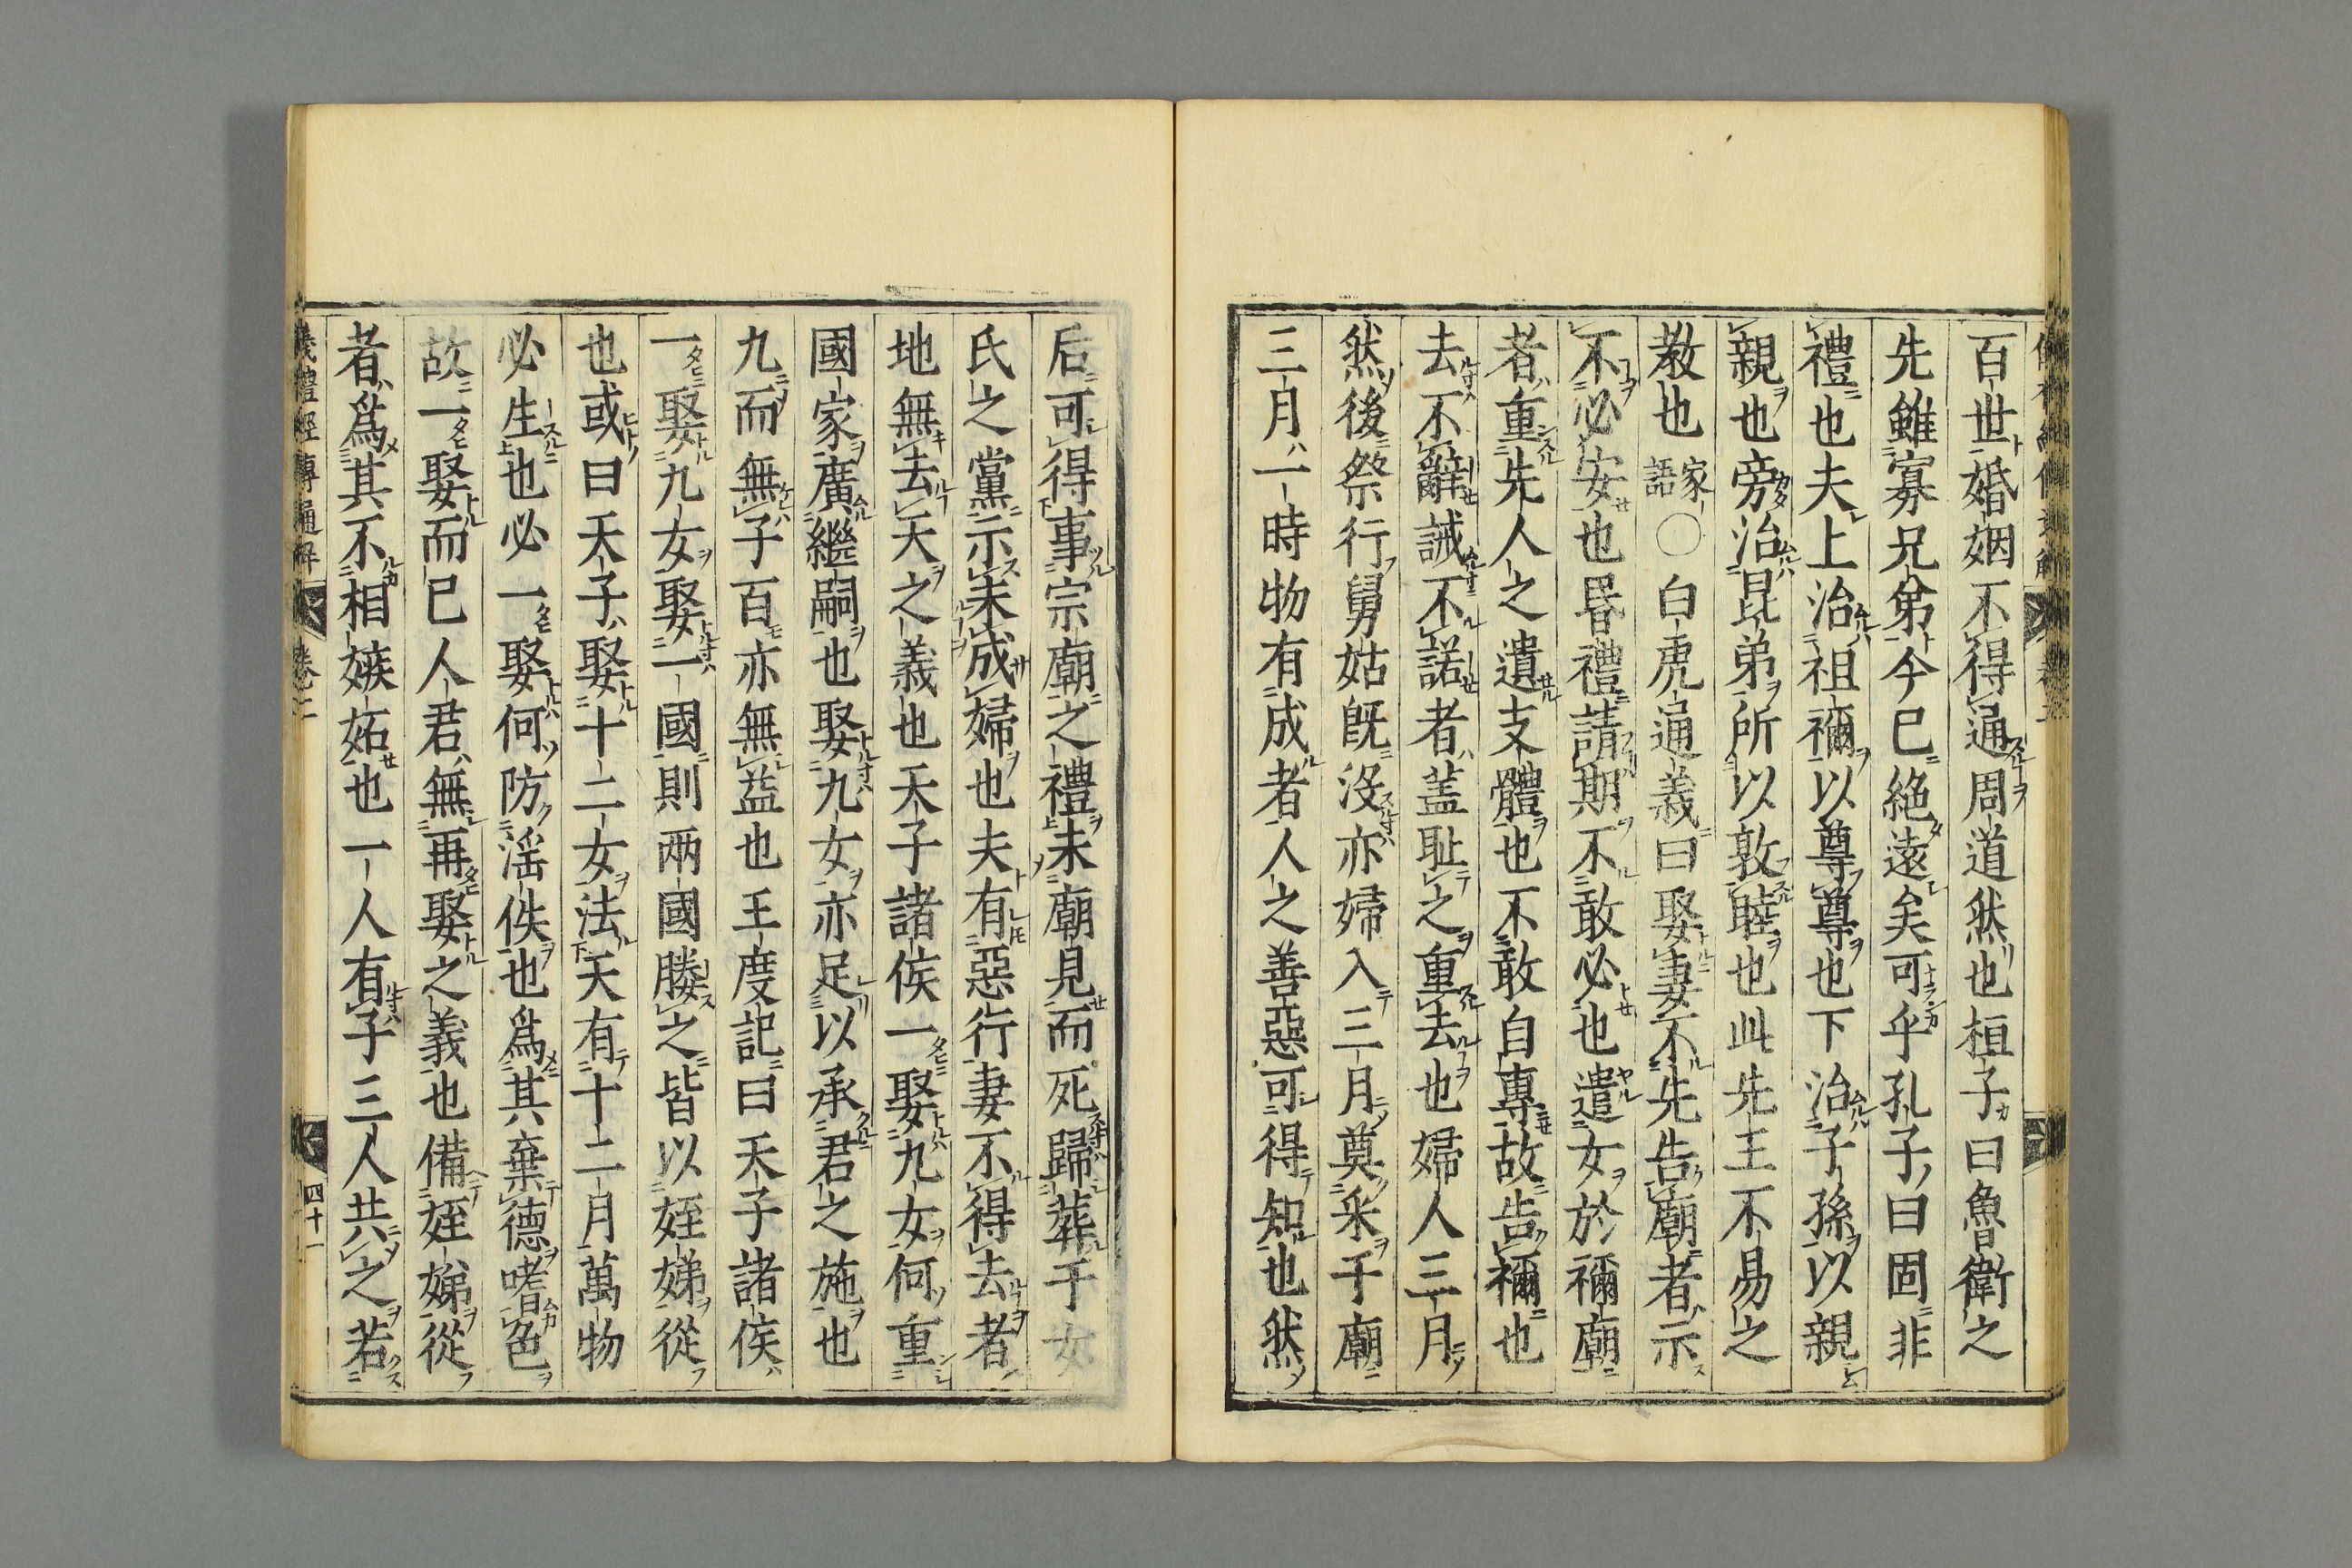 百世婚姻不得通周道然也桓子曰魯衛之
先雖寡兄弟今已絕遠矣可乎孔子曰固非
禮也夫上治祖禰以尊尊也下治子孫以親
親也旁治昆弟所以敦睦也此先王不易之
教也家語○白虎通義曰娶妻不先告廟者示
不必安也昏禮請期不敢必也遣女於禰廟
者重先人之遺支體也不敢自專故告禰也
去不辭誡不諾者蓋恥之重去也婦人三月
然後祭行舅姑既沒亦婦入三月奠采于廟
三月一時物有成者人之善惡可得知也然
后可得事宗廟之禮未廟見而死歸葬于女
氏之黨示未成婦也夫有惡行妻不得去者
地無去天之義也天子諸侯一娶九女何重
國家廣繼嗣也娶九女亦足以承君之施也
九而無子百亦無益也王度記曰天子諸侯
一娶九女娶一國則兩國媵之皆以姪娣從
也或曰天子娶十二女法天有十二月萬物
必生也必一娶何防淫佚也爲其棄德嗜色
故一娶而已人君無再娶之義也備姪娣從
者爲其不相嫉妬也一人有子三人共之若
儀禮經傳通解 卷二 四十一